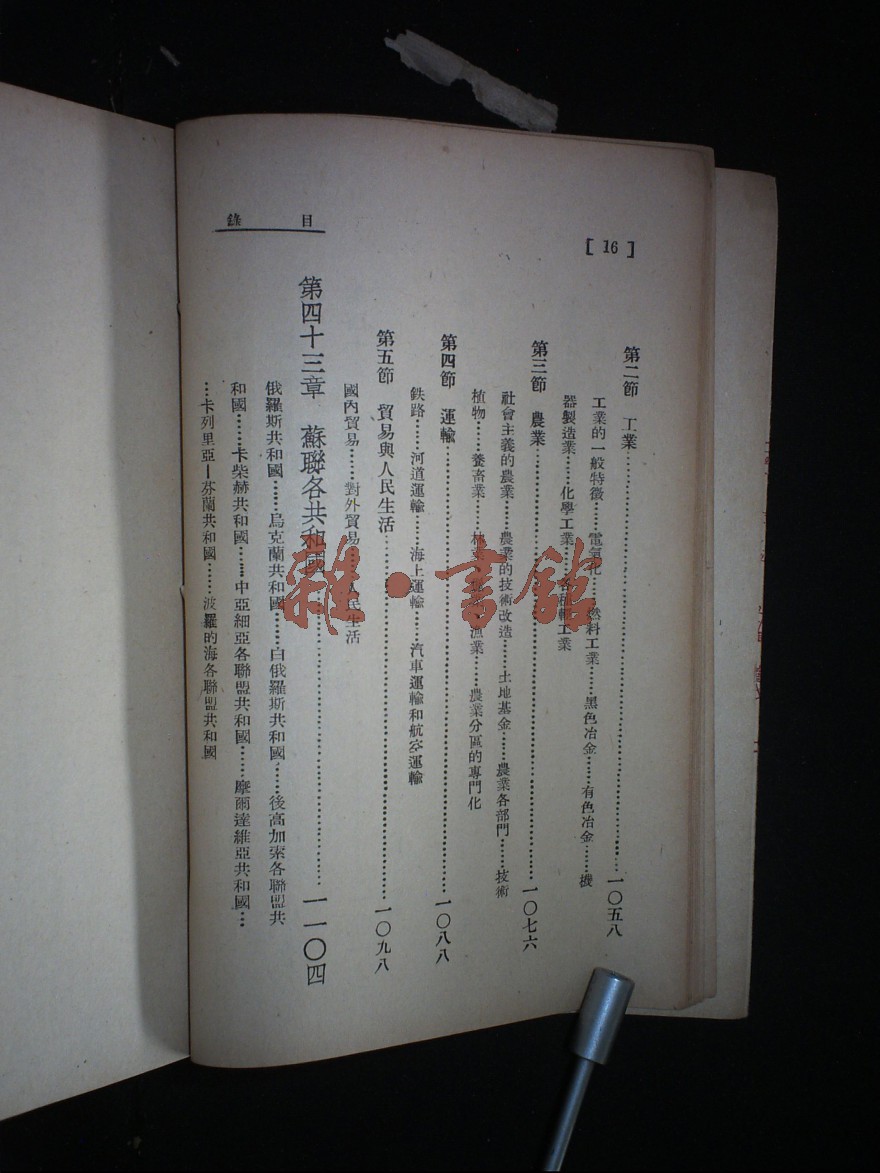 目錄
[ 16 ]
第二節 工業……一〇五八
工業的一般特徵……電氣化……燃料工業……黑色冶金……有色冶金……機
器製造業……化學工業……各種輕工業
第三節 農業……一〇七六
社會主義的農業……農業的技術改造……土地基金……農業各部門……技術
植物……養畜業……林業……漁業……農業分區的專門化
第四節 運輸……一〇八八
鉄路……河道運輸……海上運輸……汽車運輸和航空運輸
第五節 貿易與人民生活……一〇九八
國內貿易……對外貿易……人民生活
第四十三章 蘇聯各共和國……一一〇四
俄羅斯共和國……烏克蘭共和國……白俄羅斯共和國……後高加索各聯盟共
和國……卡柴赫共和國……中亞細亞各聯盟共和國……摩爾達維亞共和國…
…卡列里亞—芬蘭共和國……波羅的海各聯盟共和國
雜·書館